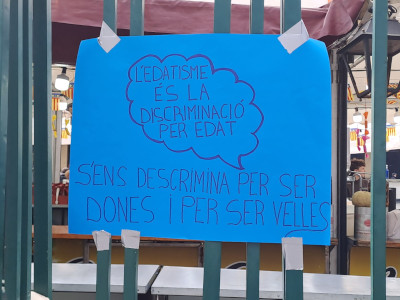 L'EDATISME
ÉS LA
DISCRIMINACIÓ
PER EDAT
S'ENS DESCRIMINA PER SER
DONES I PER SER VELLES